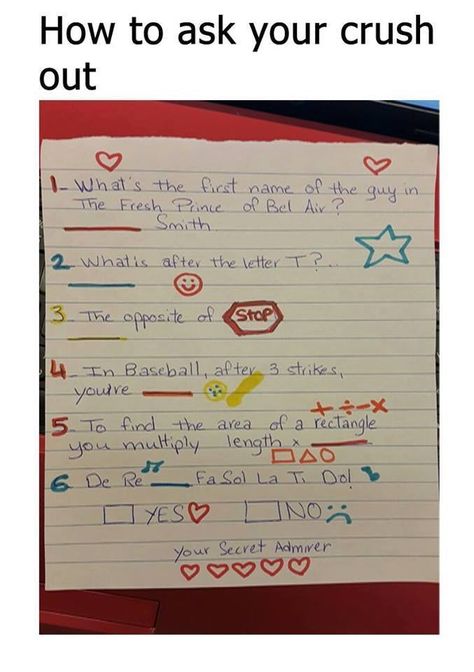 How to ask your crush
out
1- What's the first name of the guy in
The Fresh Prince of Bel Air?
Smith
2 What is after the letter T?
3 The opposite of STOP
4- In Baseball, after 3 strikes,
you're
+ ÷ - ×
5- To find the area of a rectangle
you multiply length x
6 De Re Fa Sol La Ti Do!
YES NO
Your Secret Admirer